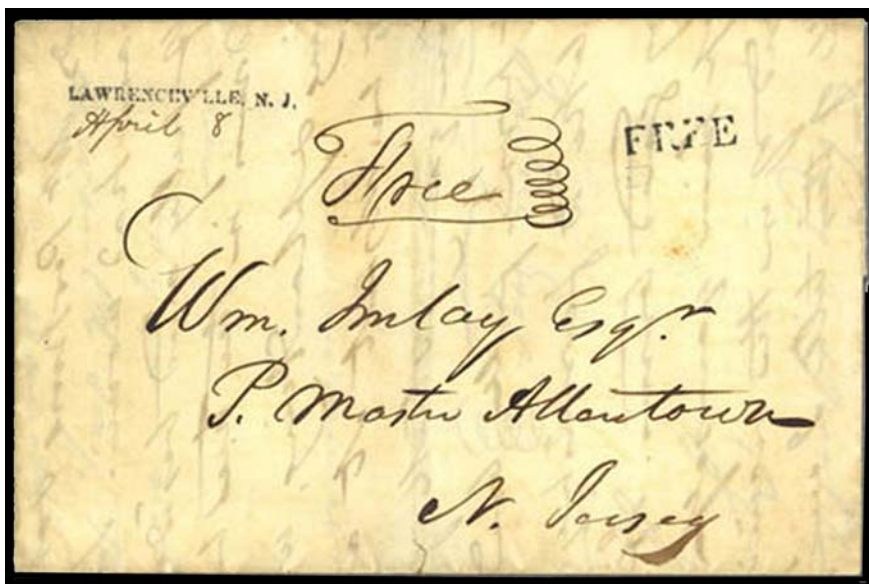 LAWRENCEVILLE, N. J.
April 8
Free
FREE
Wm. Imlay Esqr.
P. Master Allentown
N. Jersey